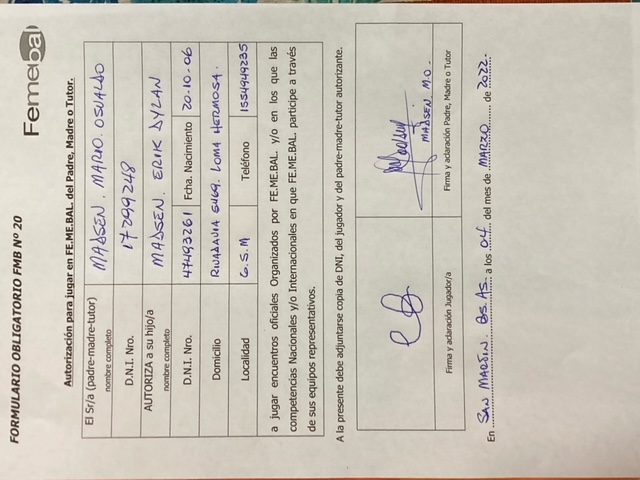 FORMULARIO OBLIGATORIO FMB Nº 20
Femebal
Autorización para jugar en FE.ME.BAL. del Padre, Madre o Tutor.
El Sr/a (padre-madre-tutor) MADSEN, MARIO OSVALDO
nombre completo
D.N.I. Nro. 17299248
AUTORIZA a su hijo/a MADSEN. ERIK DYLAN
nombre completo
D.N.I. Nro. 47493261 Fcha. Nacimiento 20-10-06
Domicilio RIVADAVIA 5469. LOMA HERMOSA.
Localidad G.S.M Teléfono 1554949235
a jugar encuentros oficiales Organizados por FE.ME.BAL. y/o en los que las
competencias Nacionales y/o Internacionales en que FE.ME.BAL. participe a través
de sus equipos representativos.
A la presente debe adjuntarse copia de DNI, del jugador y del padre-madre-tutor autorizante.
MADSEN M.O.
Firma y aclaración Jugador/a Firma y aclaración Padre, Madre o Tutor
En SAN MARTIN. BS.AS. a los 04 del mes de MARZO de 2022.